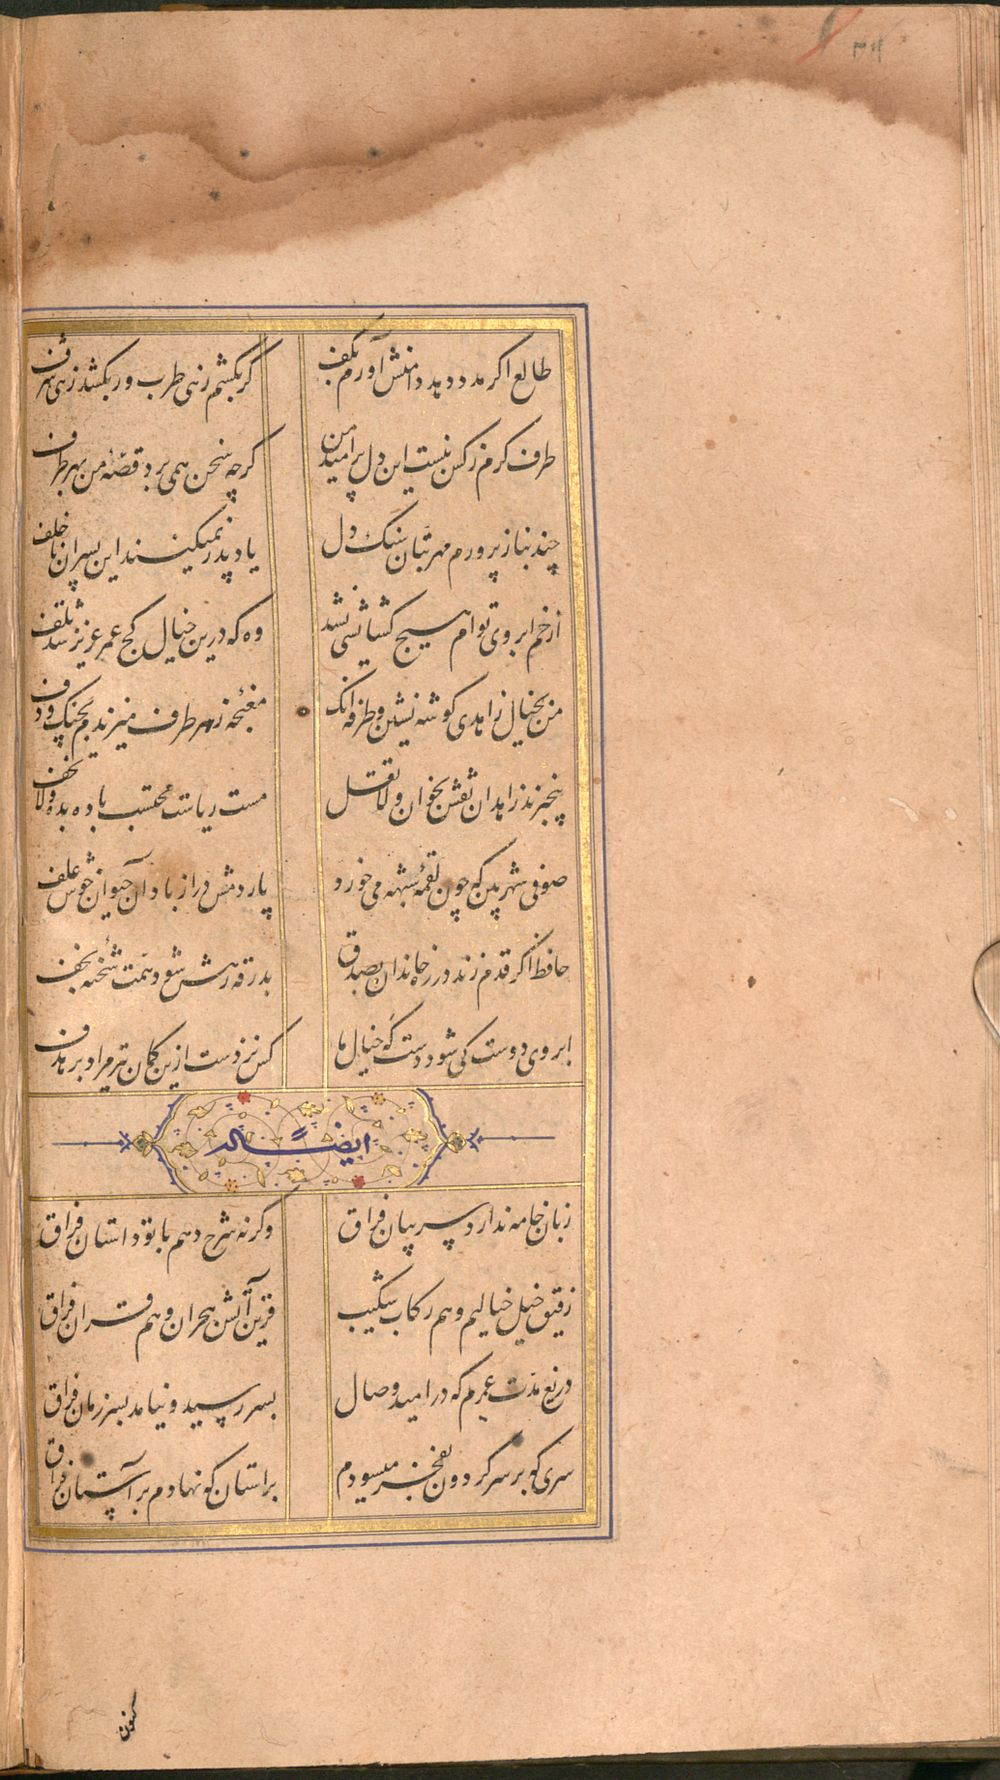 طالع اگر مدد دهد دامنش آورم بکف
کر بکشم زهی طرب ور بکشد زهی شرف
طرف کرم ز کس نبست این دل پر امید من
کرچه سخن همی برد قصهٔ من بهر طرف
چند بناز پرورم مهر بتان سنک دل
یاد پدر نمیکنند این پسران ناخلف
از خم ابروی توام هیچ کشایشی نشد
وه که درین خیال کج عمر عزیز شد تلف
من بخیال زاهدی کوشه نشین و طرفه آنک
مغبچهٔ ز هر طرف میزندم بچنک و دف
بیخبرند زاهدان نقش بخوان و لا تقل
مست ریاست محتسب باده بده و لا تخف
صوفی شهر بین که چون لقمهٔ شبهه می خورد
پاردمش دراز باد آن حیوان خوش علف
حافظ اگر قدم زند در ره خاندان بصدق
بدرقه رهش شود همت شحنه نجف
ابروی دوست کی شود دست کش خیال ما
کس نزدست ازین کمان تیر مراد بر هدف
ایضاً له
زبان خامه ندارد سر بیان فراق
وکرنه شرح دهم با تو داستان فراق
رفیق خیل خیالیم و هم رکاب شکیب
قرین آتش هجران و هم قران فراق
دریغ مدت عمرم که در امید وصال
بسر رسید و نیامد بسر زمان فراق
سری که بر سر کردون بفخر میسودم
براستان که نهادم بر آستان فراق
کنون